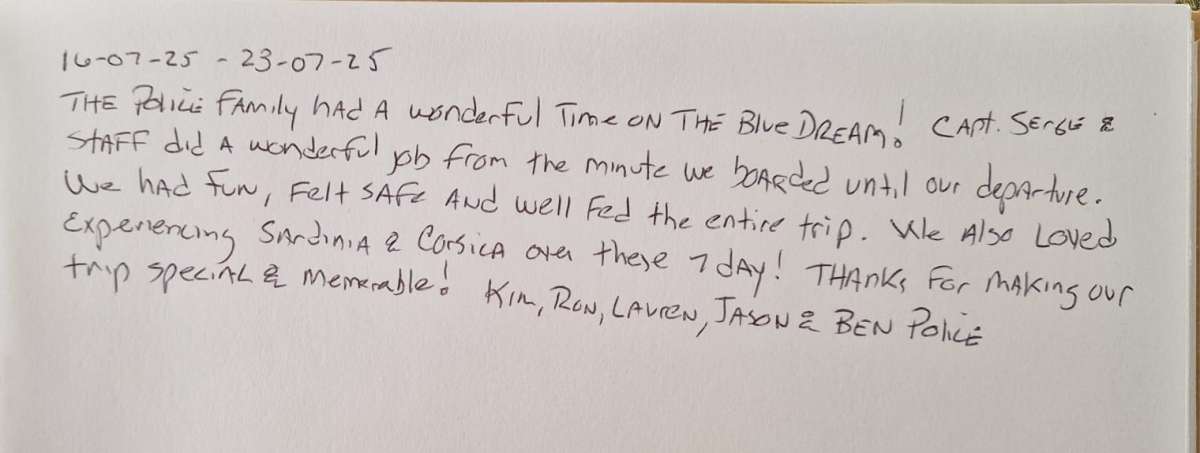 16-07-25 - 23-07-25
THE Police Family had a wonderful Time on THE Blue DREAM! Capt. Sergie &
Staff did a wonderful job from the minute we boarded until our departure.
We had fun, Felt safe and well fed the entire trip. We also Loved
Experiencing Sardinia & Corsica over these 7 day! Thanks for making our
trip special & memerable! Kim, Ron, Lauren, Jason & Ben Police